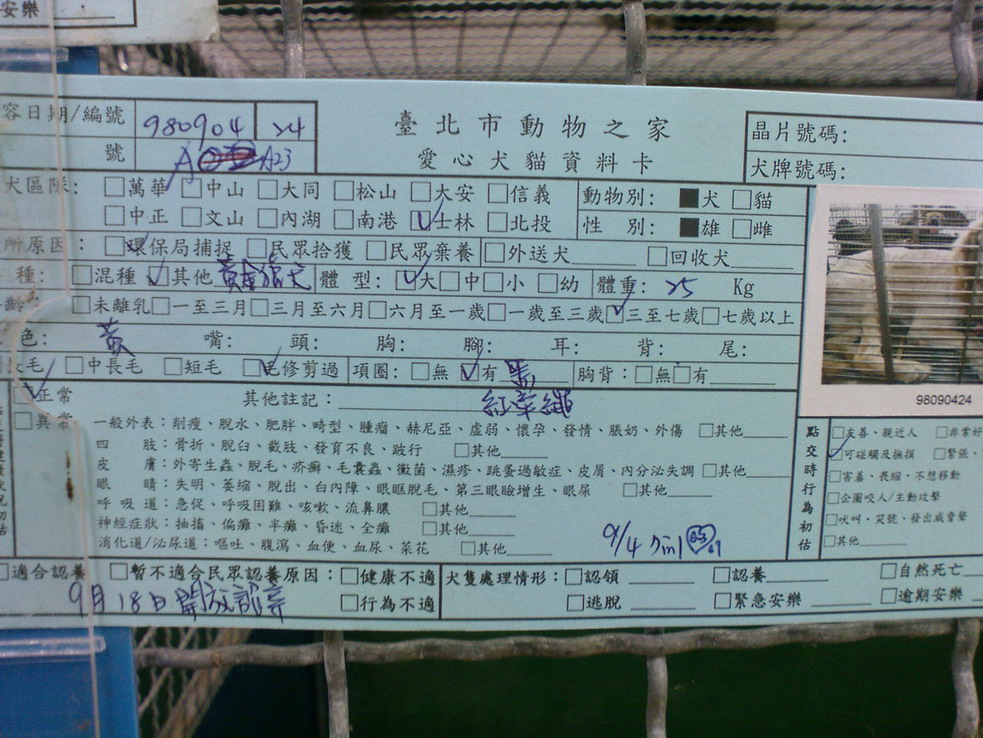 安樂
臺北市動物之家
愛心犬貓資料卡
容日期/編號 980904 24
號 A23
晶片號碼:
犬牌號碼:
犬區隊: □萬華 □中山 □大同 □松山 □大安 □信義 動物別: ■犬 □貓
□中正 □文山 □內湖 □南港 □士林 □北投 性 別: ■雄 □雌
所原因: □環保局捕捉 □民眾拾獲 □民眾棄養 □外送犬 □回收犬
種: □混種 □其他 黃 體 型: □大 □中 □小 □幼 體重: 25 Kg
齡 □未離乳 □一至三月 □三月至六月 □六月至一歲 □一歲至三歲 □三至七歲 □七歲以上
色: 黃 嘴: 頭: 胸: 腳: 耳: 背: 尾:
長毛 □中長毛 □短毛 □毛修剪過 項圈: □無 □有 胸背: □無 □有
正常 其他註記: 紅 繩
□異常 一般外表:削瘦、脫水、肥胖、畸型、腫瘤、赫尼亞、虛弱、懷孕、發情、脹奶、外傷 □其他
四 肢:骨折、脫臼、截肢、發育不良、跛行 □其他
皮 膚:外寄生蟲、脫毛、疥癬、毛囊蟲、黴菌、濕疹、跳蚤過敏症、皮屑、內分泌失調 □其他
眼 睛:失明、萎縮、脫出、白內障、眼眶脫毛、第三眼瞼增生、眼屎 □其他
呼吸道:急促、呼吸困難、咳嗽、流鼻膿 □其他
神經症狀:抽搐、偏癱、半癱、昏迷、全癱 □其他
消化道/泌尿道:嘔吐、腹瀉、血便、血尿、菜花 □其他
9/4
98090424
點交時行為初估
□友善、親近人 □非常好
□可碰觸及撫摸 □緊張、
□害羞、畏縮、不想移動
□企圖咬人/主動攻擊
□吠叫、哭號、發出威脅聲
□其他
□適合認養 □暫不適合民眾認養原因: □健康不適 犬隻處理情形: □認領 □認養 □自然死亡
9月18日開放認養 □行為不適 □逃脫 □緊急安樂 □逾期安樂